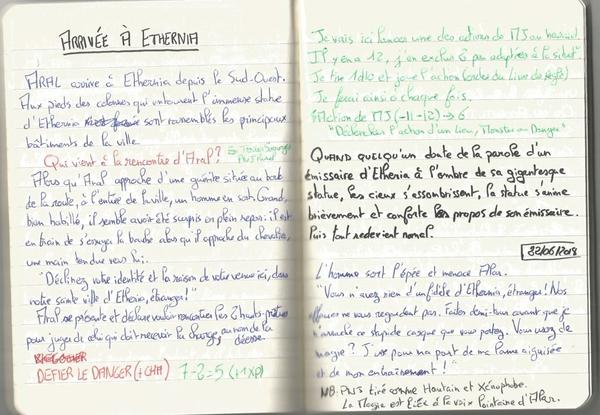 ARRIVÉE À ETHERNIA
ARAL arrive à Ethernia depuis le Sud-Ouest.
Aux pieds des colosses qui entourent l'immense statue
d'Ethernia sont rassemblés les principaux
bâtiments de la ville.
Qui vient à la rencontre d'Aral?
Alors qu'Aral approche d'une guérite située au bord
de la route, à l'entrée de la ville, un homme en sort. Grand,
bien habillé, il semble avoir été surpris en plein repas: il est
en train de s'essuyer la bouche alors qu'il approche du chevalier,
une main tendue vers lui.
"Déclinez votre identité et la raison de votre venue ici, dans
notre sainte ville d'Etheria, étranger!"
ARAL se présente et déclare vouloir rencontrer les 2 hauts-prêtres
pour juger de celui qui doit recevoir la charge, au nom de la
déesse.
DEFIER LE DANGER (+CHA) 7-2=5 (+1XP)
Je vais ici lancer une des actions de MJ au hasard.
Il y en a 12, j'en exclus 2 peu adaptées à la situat°.
Je tire 1d10 et joue l'action (ordre du Livre de règle)
Je ferai ainsi à chaque fois.
Action de MJ (-11-12) → 6
"Déclencher l'action d'un Lieu, Monstre ou Danger"
QUAND QUELQU'UN doute de la parole d'un
émissaire d'Ethenia à l'ombre de sa gigantesque
statue, les cieux s'assombrissent, la statue s'anime
brièvement et conforte les propos de son émissaire.
Puis tout redevient normal.
22/06/2018
L'homme sort l'épée et menace Aral.
"Vous n'avez rien d'un fidèle d'Ethernia, étranger! Nos
affaires ne vous regardent pas. Faites demi-tour avant que je
n'arrache ce stupide casque que vous portez. Vous usez de
magie? J'use pour ma part de ma lame aiguisée
et de mon entraînement!"
NB: PNJ tiré comme Hautain et Xénophobe.
La Magie est liée à la voix lointaine d'Aral.